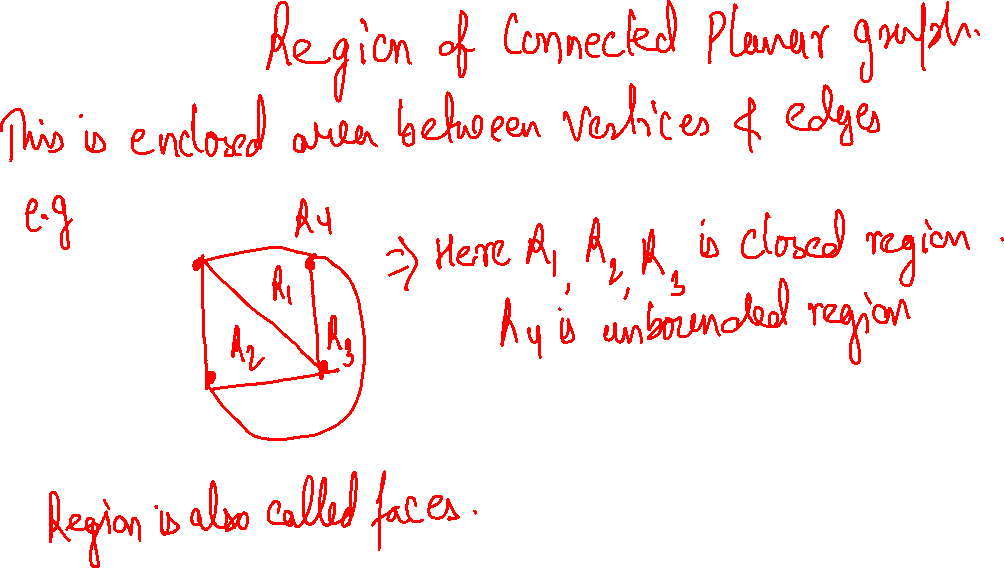 Region of Connected Planar graph.
This is enclosed area between vertices & edges
e.g
R4
R1
R2
R3
⇒ Here R1, R2, R3 is closed region.
R4 is unbounded region
Region is also called faces.